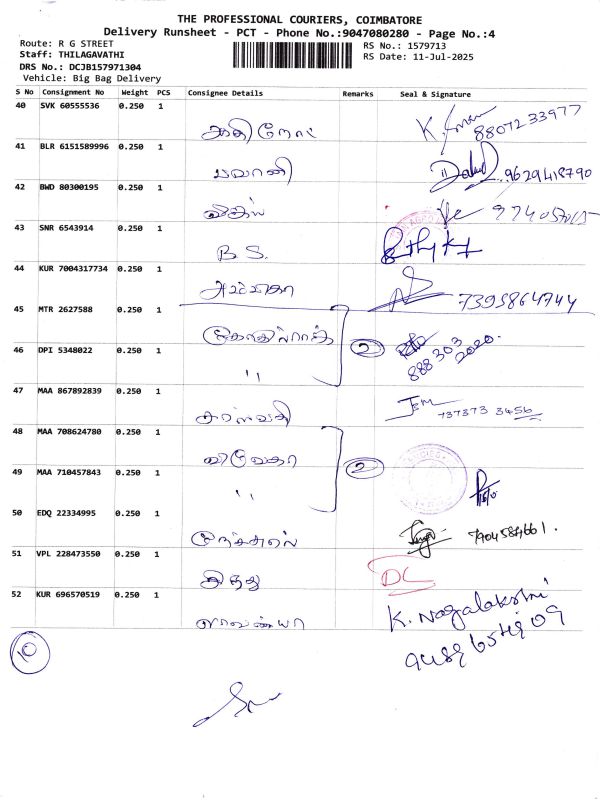 THE PROFESSIONAL COURIERS, COIMBATORE
Delivery Runsheet - PCT - Phone No.:9047080280 - Page No.:4
Route: R G STREET
Staff: THILAGAVATHI
DRS No.: DCJB157971304
Vehicle: Big Bag Delivery
RS No.: 1579713
RS Date: 11-Jul-2025
S No Consignment No Weight PCS Consignee Details Remarks Seal & Signature
40 SVK 60555536 0.250 1
88072 33977
41 BLR 6151589996 0.250 1 பவானி
9629418790
42 BWD 80300195 0.250 1
43 SNR 6543914 0.250 1 B S.
44 KUR 7004317734 0.250 1
7395864744
45 MTR 2627588 0.250 1
2
888 303 2020.
46 DPI 5348022 0.250 1 ''
47 MAA 867892839 0.250 1
737373 3456
48 MAA 708624780 0.250 1
2
49 MAA 710457843 0.250 1 ''
50 EDQ 22334995 0.250 1
7904584661.
51 VPL 228473550 0.250 1 இந்து DC
52 KUR 696570519 0.250 1 லாவண்யா K. Nagalakshmi
10